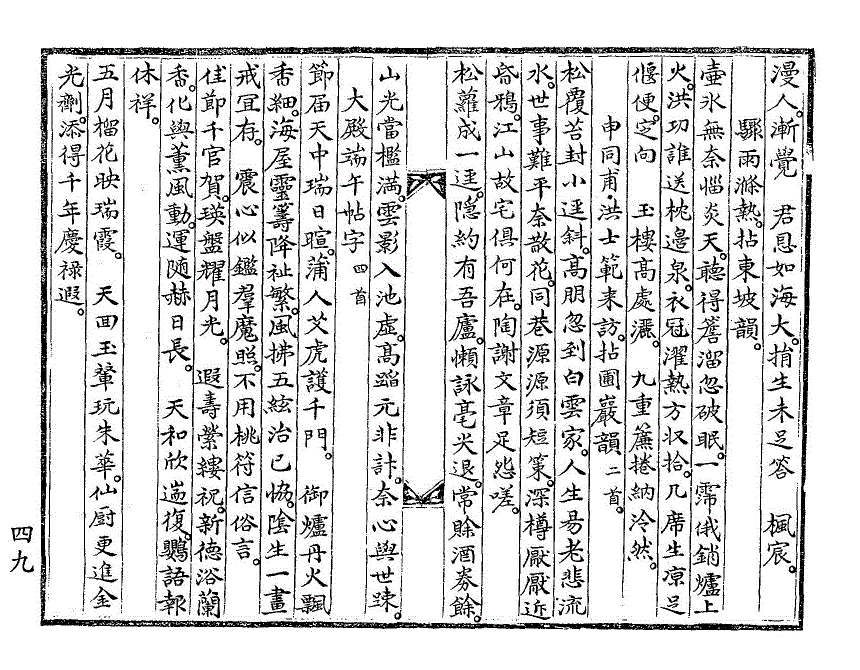 漫人。漸覺　君恩如海大。捐生未足答　楓宸。
驟雨滌熱。拈東坡韻。
壺氷無奈惱炎天。聽得簷溜忽破眠。一霈俄銷爐上
火。洪功誰送枕邊泉。衣冠濯熱方収拾。几席生凉足
偃便。定向　玉樓高處灑。九重簾捲納泠然。
申同甫,洪士範来訪。拈圃巖韻。二首。
松覆苔封小逕斜。高朋忽到白雲家。人生易老悲流
水。世事難平奈散花。同巷源源須短策。深樽厭厭近
昏鴉。江山故宅俱何在。陶謝文章足怨嗟。
松蘿成一逕。隱約有吾廬。懶詠毫尖退。常賖酒券餘。
山光當檻滿。雲影入池虛。高蹈元非計。奈心與世踈。
大殿端午帖字 四首
節届天中瑞日暄。蒲人艾虎護千門。　御爐丹火飄
香細。海屋靈籌降祉繁。風拂五絃治已恊。陰生一畫
戒宜存。　震心似鑑羣魔照。不用桃符信俗言。
佳節千官賀。瑛盤耀月光。　遐壽縈縷祝。新德浴蘭
香。化與薫風動。運随赫日長。　天和欣遄復。鸎語報
休祥。
五月榴花映瑞霞。　天回玉輦玩朱華。仙厨更進金
光劑。添得千年慶祿遐。
四九